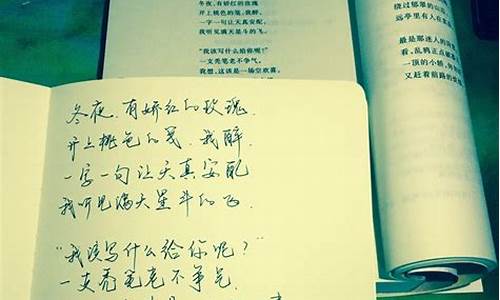 冬夜,有娇红的玫瑰
开上桃色的笺,我醉,
一字一句让天真安配,
我听见满天星斗的飞。
“我该写什么给你呢?”
一支秃笔老不争气,
我想,这该是一场空欢喜。
绕过郁黎的山
远亭里有人在
最是那迷人的
看,乱鸦正点
一顶的小轿,
又赶着前路的
冬夜,有娇红的玫瑰,
开上桃色的笺,我醉,
一字一句让天真安配
我听见满天星斗的飞.
“我该写什么给你呢?”
一支秃笔老不争气.